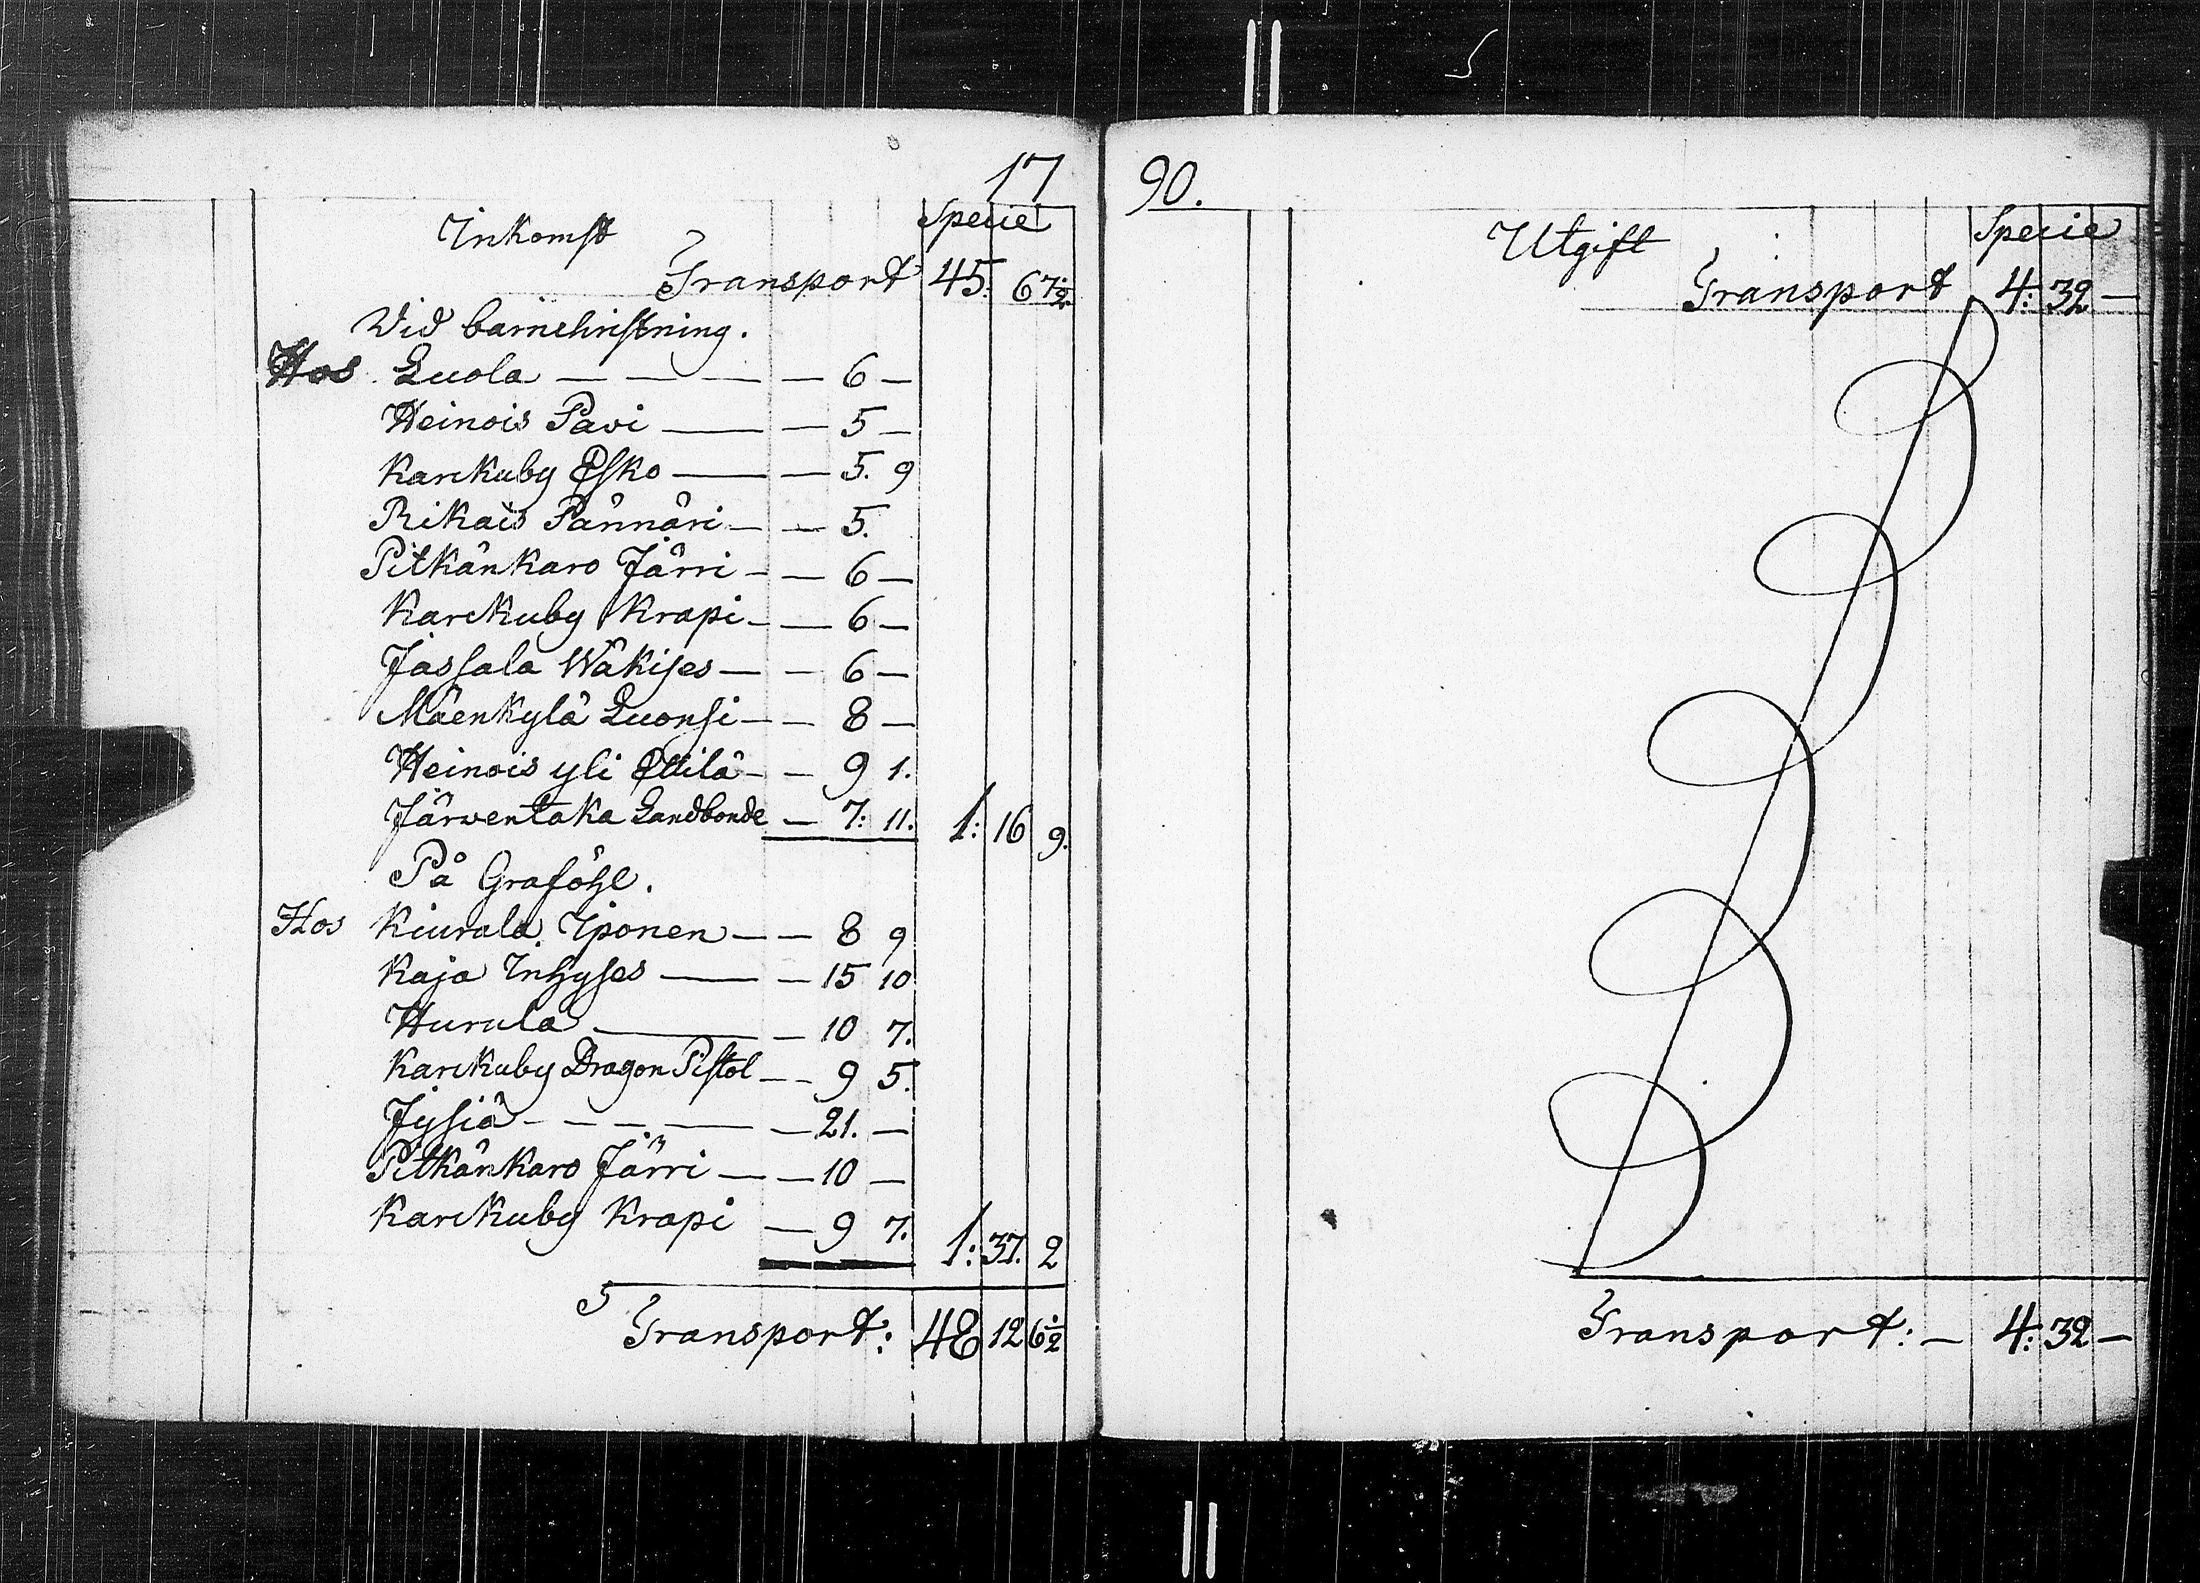 17
Inkomst Specie
Transport 45: 6 7 1/2.
Wid barnchristning.
Hos Luola — — — — 6 —
Heinois Pavi — — 5 —
Karckuby Esko — — 5. 9
Rikais Pännäri — — 5.
Pitkänkaro Järri — — 6 —
Karckuby Krapi — — 6 —
Jassala Wäkises — — 6 —
Mäenkylä Luonsi — — 8 —
Heinois yli Ettilä — — 9 1.
Järwentaka Landbonde — 7: 11. 1: 16 9.
På Graföhl.
Hos Kiurala Iponen — — 8 9
Kaja Inhyses — — 15 10
Hurula — — 10 7.
Karckuby Dragon Pistol — — 9 5.
Jysiä — — — — — 21. —
Pitkänkaro Järri — — 10 —
Karckuby Krapi — 9 7. 1: 37. 2
Transport: 48 12 6 1/2
90.
Utgift Specie
Transport 4: 32 —
Transport: — 4: 32 —